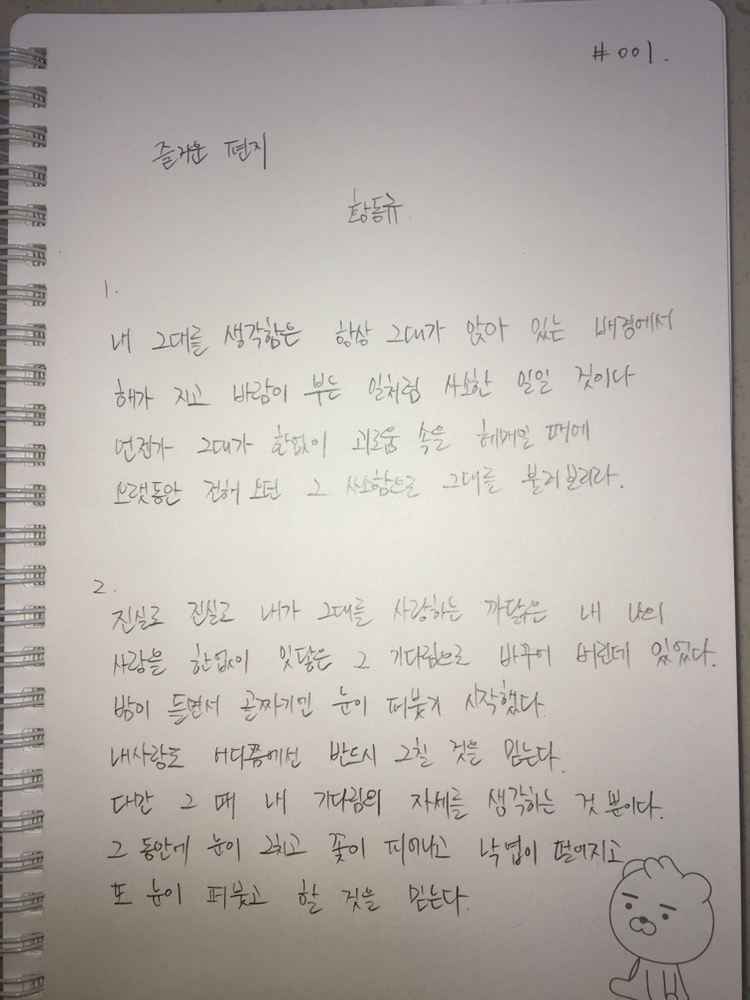 #001.
즐거운 편지
황동규
1.
내 그대를 생각함은 항상 그대가 앉아 있는 배경에서
해가 지고 바람이 부는 일처럼 사소한 일일 것이나
언젠가 그대가 한없이 괴로움 속을 헤매일 때에
오랫동안 전해 오던 그 사소함으로 그대를 불러보리라.
2.
진실로 진실로 내가 그대를 사랑하는 까닭은 내 나의
사랑을 한없이 잇닿은 그 기다림으로 바꾸어 버린데 있었다.
밤이 들면서 골짜기엔 눈이 퍼붓기 시작했다.
내사랑도 어디쯤에선 반드시 그칠 것을 믿는다.
다만 그 때 내 기다림의 자세를 생각하는 것 뿐이다.
그 동안에 눈이 그치고 꽃이 피어나고 낙엽이 떨어지고
또 눈이 퍼붓고 할 것을 믿는다.